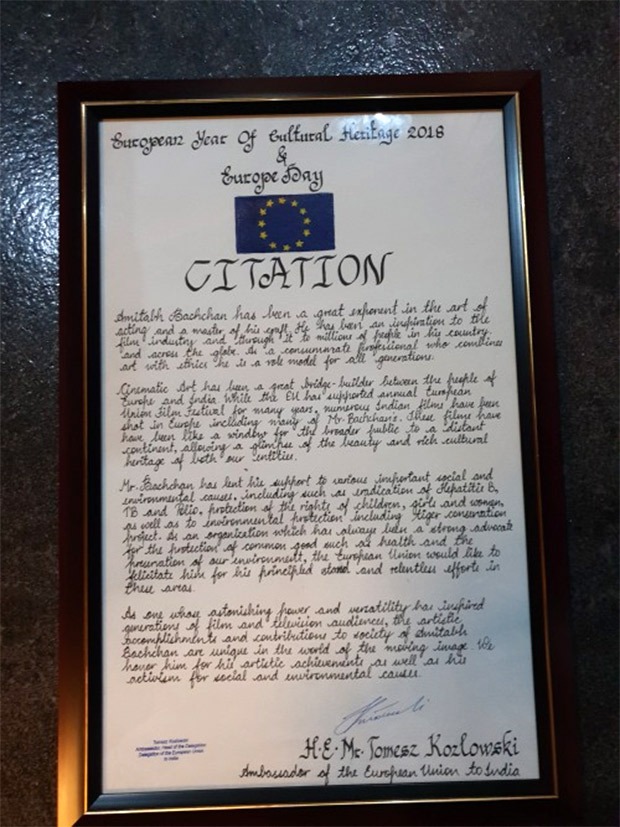 European Year Of Cultural Heritage 2018
&
Europe Day
CITATION
Amitabh Bachchan has been a great exponent in the art of
acting and a master of his craft. He has been an inspiration to the
film industry and through it to millions of people in his country
and across the globe. As a consummate professional who combines
art with ethics he is a role model for all generations.
Cinematic Art has been a great bridge-builder between the people of
Europe and India. While the EU has supported annual European
Union Film Festival for many years, numerous Indian films have been
shot in Europe including many of Mr. Bachchan's. These films have
have been like a window for the broader public to a distant
continent, allowing a glimpse of the beauty and rich cultural
heritage of both our entities.
Mr. Bachchan has lent his support to various important social and
environmental causes, including such as eradication of Hepatitis B,
TB and Polio, protection of the rights of children, girls and women,
as well as to environmental protection including Tiger conservation
project. As an organization which has always been a strong advocate
for the protection of common good such as health and the
preservation of our environment, the European Union would like to
felicitate him for his principled stand and relentless efforts in
these areas.
As one whose astonishing power and versatility has inspired
generations of film and television audiences, the artistic
accomplishments and contributions to society of Amitabh
Bachchan are unique in the world of the moving image. We
honor him for his artistic achievements as well as his
activism for social and environmental causes.
Tomasz Kozlowski
Ambassador, Head of the Delegation
Delegation of the European Union
to India
H.E. Mr. Tomesz Kozlowski
Ambassador of the European Union to India